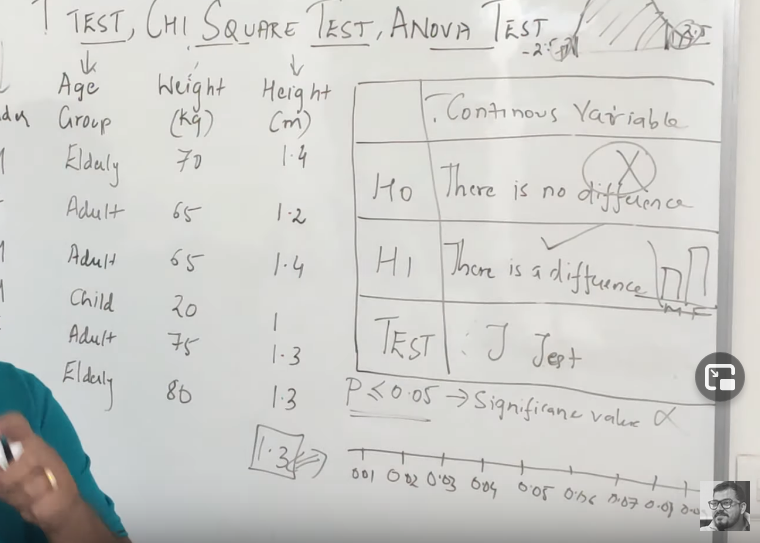 T TEST, CHI SQUARE TEST, ANOVA TEST
Age Group
Weight (kg)
Height (m)
Elderly 70 1.4
Adult 65 1.2
Adult 65 1.4
Child 20 1
Adult 75 1.3
Elderly 80 1.3
1.3
. Continous Variable
H0 There is no difference X
H1 There is a difference
M F
TEST : T Test
P ≤ 0.05 → Significane value α
0.01 0.02 0.03 0.04 0.05 0.06 0.07